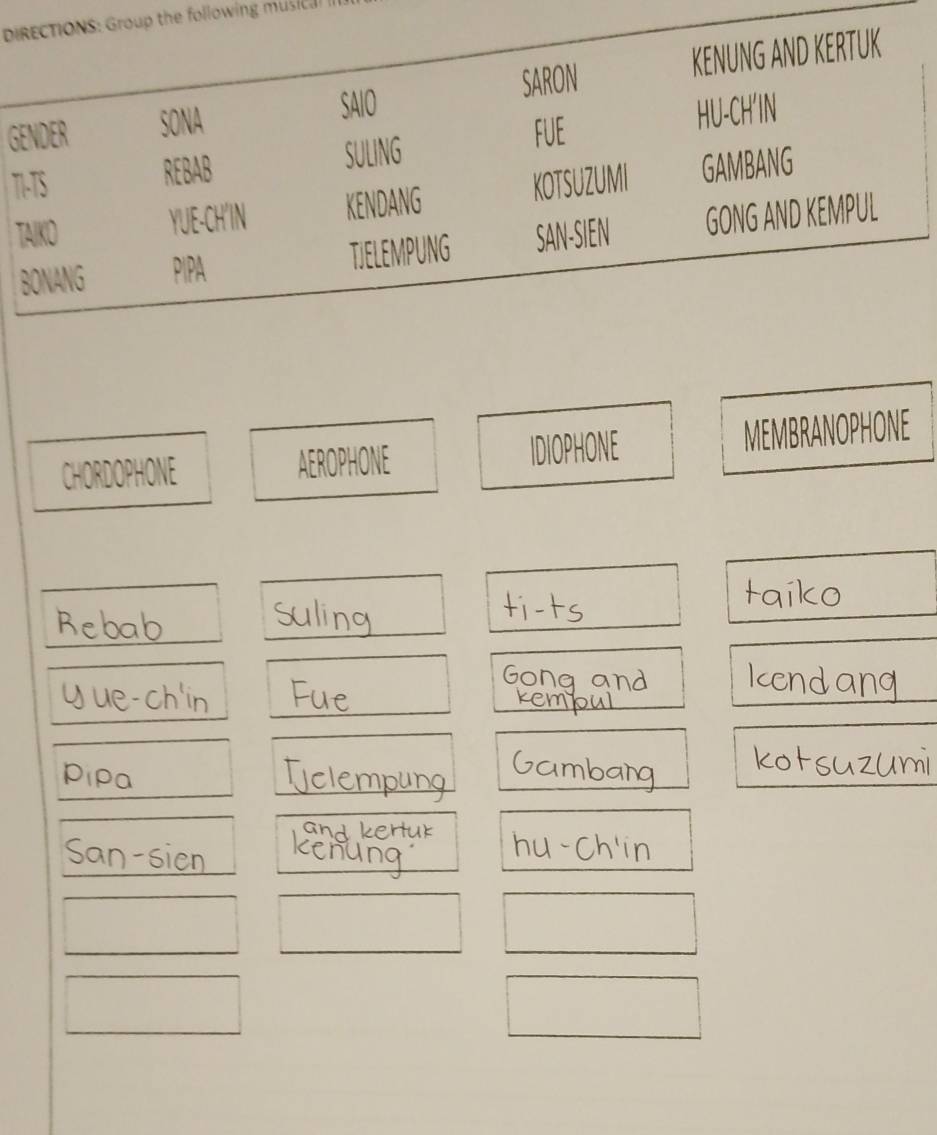 DIRECTIONS: Group the following musical
GENDER SONA SAIO SARON KENUNG AND KERTUK
TI-TS REBAB SULING FUE HU-CH'IN
TAIKO YUE-CH'IN KENDANG KOTSUZUMI GAMBANG
BONANG PIPA TJELEMPUNG SAN-SIEN GONG AND KEMPUL
CHORDOPHONE AEROPHONE IDIOPHONE MEMBRANOPHONE
Rebab suling ti-ts taiko
yue-ch'in Fue Gong and kempul kendang
pipa Tjelempung Gambang kotsuzumi
San-sien kenung and kertuk hu-ch'in